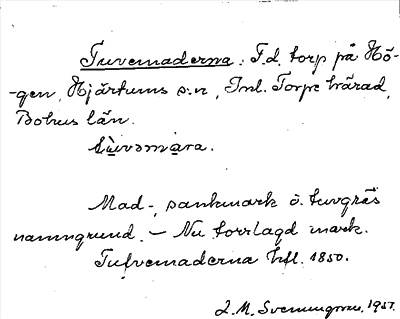 Tuvemaderna: F.d. torp på Hö-
-gen, Hjärtums s:n, Inl. Torpe härad,
Bohus län.
tùvəmàra.
Mad-, sankmark ö. tuvgräs
namngrund. — Nu torrlagd mark.
Tufvemaderna hfl. 1850.
J.M. Svenungsson, 1957.